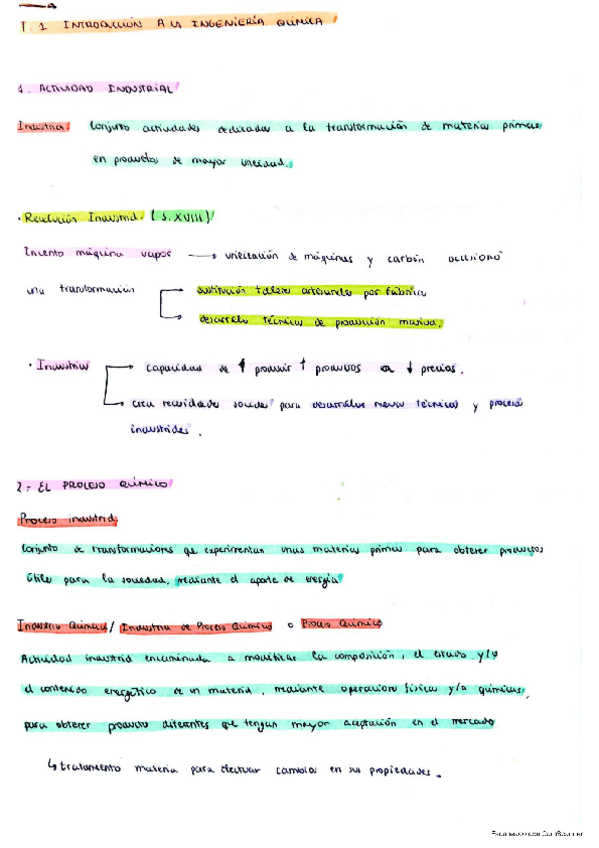 T. 1 INTRODUCCIÓN A LA INGENIERÍA QUÍMICA
1. ACTIVIDAD INDUSTRIAL
Industria Conjunto actividades dedicadas a la transformación de materias primas
en productos de mayor utilidad.
· Revolución Industrial. (S. XVIII)
Invento máquina vapor → utilización de máquinas y carbón ocasionó
una transformación → sustitución talleres artesanales por fábrica
→ desarrollo técnicas de producción masiva.
· Industrias → capacidad de ↑ producir ↑ productos a ↓ precios.
→ crea necesidades sociales para desarrollar nuevas técnicas y procesos
industriales.
2.- EL PROCESO QUÍMICO
Proceso industrial
Conjunto de transformaciones que experimentan unas materias primas para obtener productos
útiles para la sociedad, mediante el aporte de energía
Industria Química / Industria de Proceso Químico o Proceso Químico
Actividad industrial encaminada a modificar la composición, el estado y/o
el contenido energético de un material, mediante operaciones físicas y/o químicas,
para obtener productos diferentes que tengan mayor aceptación en el mercado
↳ tratamiento materia para efectuar cambios en sus propiedades.
Escaneado con CamScanner